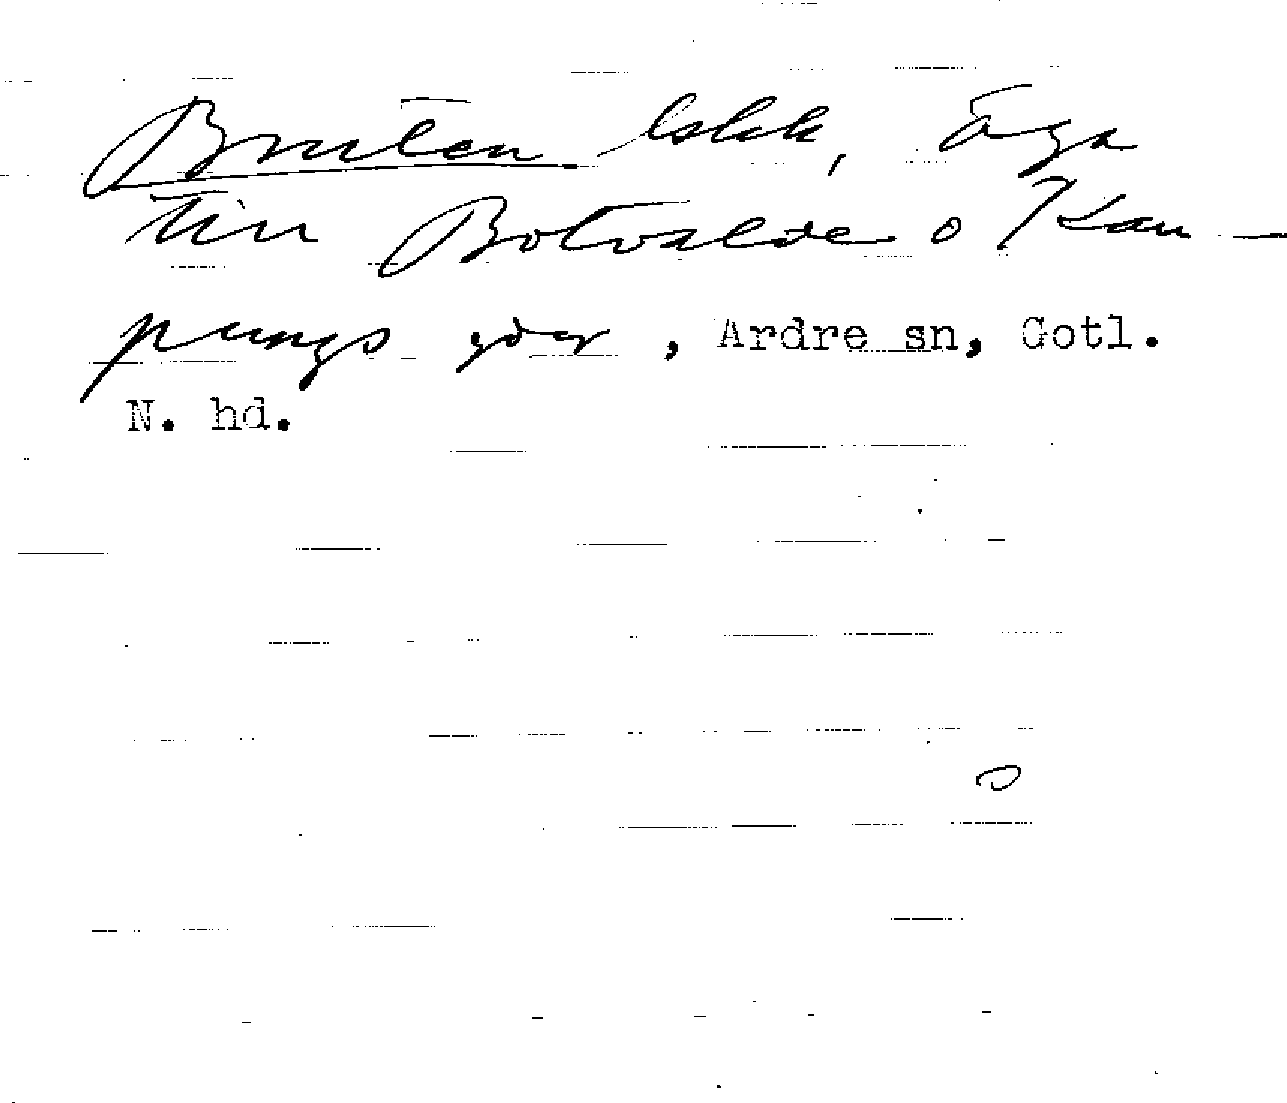 Bruten lskk, äga
till Botvalde o Kau-
pungs gdar, Ardre sn, Gotl.
N. hd.